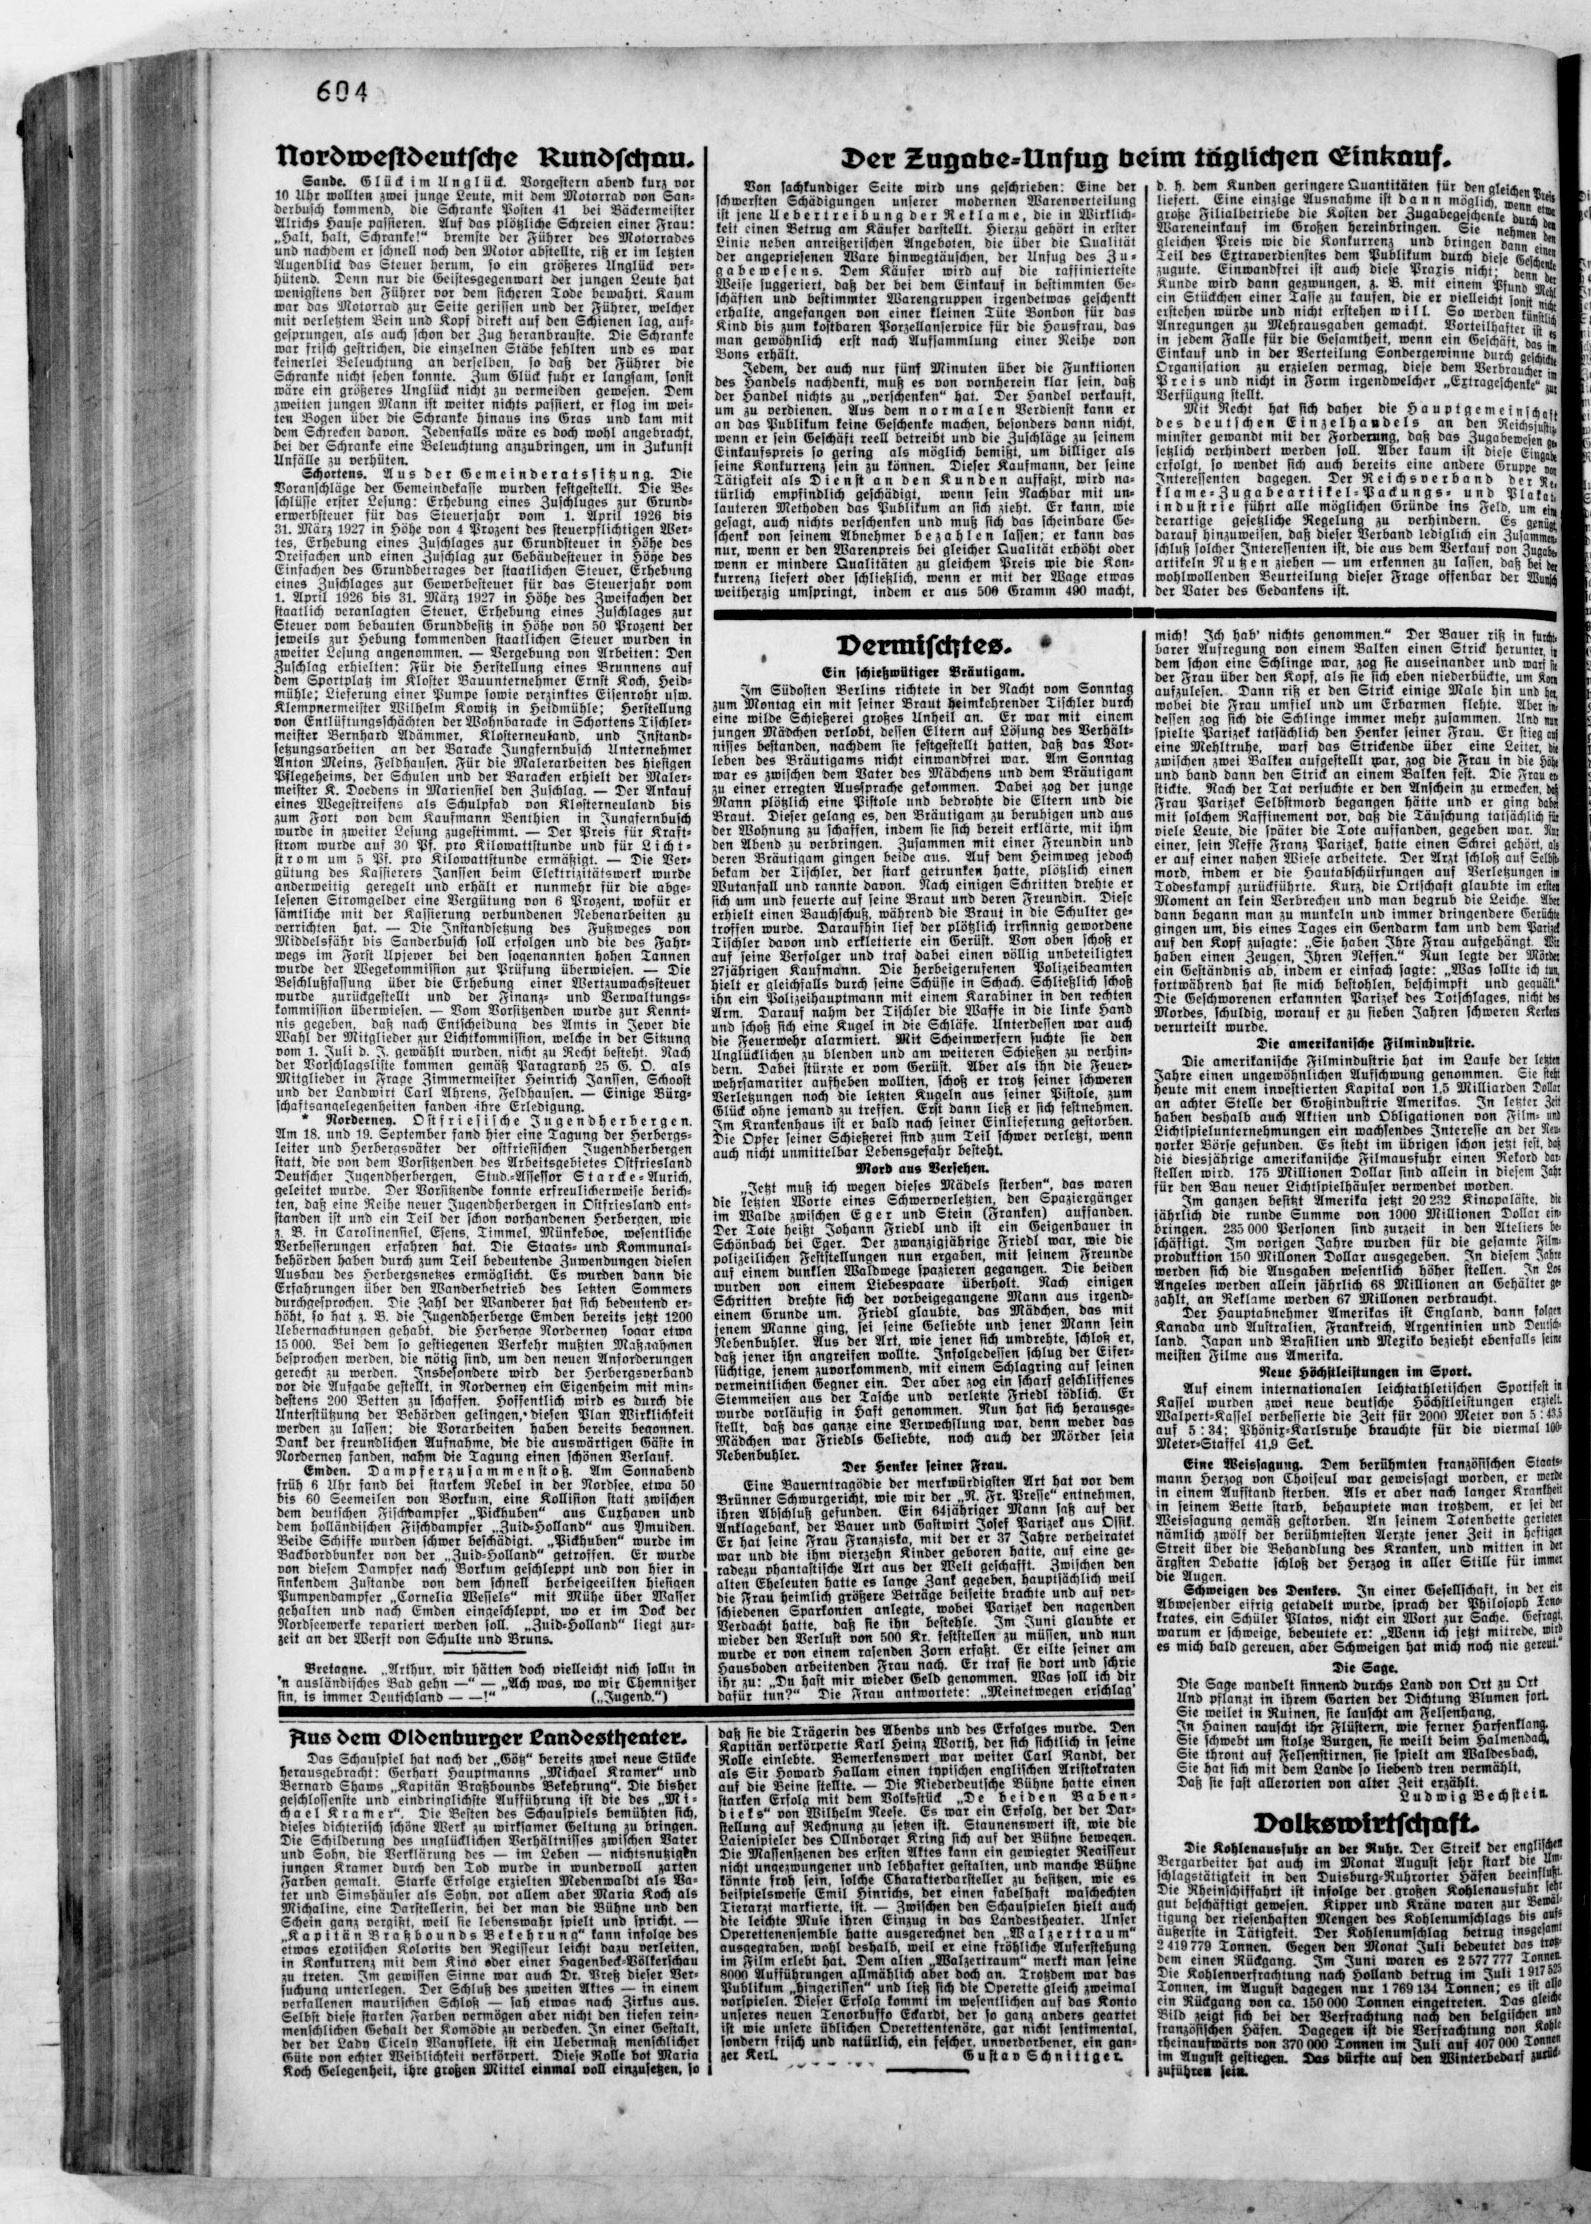 604
Nordwestdeutsche Rundschau.
Sande. Glück im Unglück. Vorgestern abend kurz vor
10 Uhr wollten zwei junge Leute, mit dem Motorrad von San-
derbusch kommend, die Schranke Posten 41 bei Bäckermeister
Alrichs Hause passieren. Auf das plötzliche Schreien einer Frau:
„Halt, halt, Schranke!“ bremste der Führer des Motorrades
und nachdem er schnell noch den Motor abstellte, riß er im letzten
Augenblick das Steuer herum, so ein größeres Unglück ver-
hütend. Denn nur die Geistesgegenwart der jungen Leute hat
wenigstens den Führer vor dem sicheren Tode bewahrt. Kaum
war das Motorrad zur Seite gerissen und der Führer, welcher
mit verletztem Bein und Kopf direkt auf den Schienen lag, auf-
gesprungen, als auch schon der Zug heranbrauste. Die Schranke
war frisch gestrichen, die einzelnen Stäbe fehlten und es war
keinerlei Beleuchtung an derselben, so daß der Führer die
Schranke nicht sehen konnte. Zum Glück fuhr er langsam, sonst
wäre ein größeres Unglück nicht zu vermeiden gewesen. Dem
zweiten jungen Mann ist weiter nichts passiert, er flog im wei-
ten Bogen über die Schranke hinaus ins Gras und kam mit
dem Schrecken davon. Jedenfalls wäre es doch wohl angebracht,
bei der Schranke eine Beleuchtung anzubringen, um in Zukunft
Unfälle zu verhüten.
Schortens. Aus der Gemeinderatssitzung. Die
Voranschläge der Gemeindekasse wurden festgestellt. Die Be-
schlüsse erster Lesung: Erhebung eines Zuschluges zur Grund-
erwerbsteuer für das Steuerjahr vom 1. April 1926 bis
31. März 1927 in Höhe von 4 Prozent des steuerpflichtigen Wer-
tes, Erhebung eines Zuschlages zur Grundsteuer in Höhe des
Dreifachen und einen Zuschlag zur Gebäudesteuer in Höhe des
Einfachen des Grundbetrages der staatlichen Steuer, Erhebung
eines Zuschlages zur Gewerbesteuer für das Steuerjahr vom
1. April 1926 bis 31. März 1927 in Höhe des Zweifachen der
staatlich veranlagten Steuer, Erhebung eines Zuschlages zur
Steuer vom bebauten Grundbesitz in Höhe von 50 Prozent der
jeweils zur Hebung kommenden staatlichen Steuer wurden in
zweiter Lesung angenommen. — Vergebung von Arbeiten: Den
Zuschlag erhielten: Für die Herstellung eines Brunnens auf
dem Sportplatz im Kloster Bauunternehmer Ernst Koch, Heid-
mühle; Lieferung einer Pumpe sowie verzinktes Eisenrohr usw.
Klempnermeister Wilhelm Kowitz in Heidmühle; Herstellung
von Entlüftungsschächten der Wohnbaracke in Schortens Tischler-
meister Bernhard Adämmer, Klosterneuland, und Instand-
setzungsarbeiten an der Baracke Jungfernbusch Unternehmer
Anton Meins, Feldhausen. Für die Malerarbeiten des hiesigen
Pflegeheims, der Schulen und der Baracken erhielt der Maler-
meister K. Doedens in Mariensiel den Zuschlag. — Der Ankauf
eines Wegestreifens als Schulpfad von Klosterneuland bis
zum Fort von dem Kaufmann Benthien in Jungfernbusch
wurde in zweiter Lesung zugestimmt. — Der Preis für Kraft-
strom wurde auf 30 Pf. pro Kilowattstunde und für Licht-
strom um 5 Pf. pro Kilowattstunde ermäßigt. — Die Ver-
gütung des Kassierers Janssen beim Elektrizitätswerk wurde
anderweitig geregelt und erhält er nunmehr für die abge-
lesenen Stromgelder eine Vergütung von 6 Prozent, wofür er
sämtliche mit der Kassierung verbundenen Nebenarbeiten zu
verrichten hat. — Die Instandsetzung des Fußweges von
Middelsfähr bis Sanderbusch soll erfolgen und die des Fahr-
wegs im Forst Upjever bei den sogenannten hohen Tannen
wurde der Wegekommission zur Prüfung überwiesen. — Die
Beschlußfassung über die Erhebung einer Wertzuwachssteuer
wurde zurückgestellt und der Finanz- und Verwaltungs-
kommission überwiesen. — Vom Vorsitzenden wurde zur Kennt-
nis gegeben, daß nach Entscheidung des Amts in Jever die
Wahl der Mitglieder zur Lichtkommission, welche in der Sitzung
vom 1. Juli d. J. gewählt wurden, nicht zu Recht besteht. Nach
der Vorschlagsliste kommen gemäß Paragraph 25 G. O. als
Mitglieder in Frage Zimmermeister Heinrich Janssen, Schoost
und der Landwirt Carl Ahrens, Feldhausen. — Einige Bürg-
schaftsangelegenheiten fanden ihre Erledigung.
* Norderney. Ostfriesische Jugendherbergen.
Am 18. und 19. September fand hier eine Tagung der Herbergs-
leiter und Herbergsväter der ostfriesischen Jugendherbergen
statt, die von dem Vorsitzenden des Arbeitsgebietes Ostfriesland
Deutscher Jugendherbergen, Stud.-Assessor Starcke-Aurich,
geleitet wurde. Der Vorsitzende konnte erfreulicherweise berich-
ten, daß eine Reihe neuer Jugendherbergen in Ostfriesland ent-
standen ist und ein Teil der schon vorhandenen Herbergen, wie
z. B. in Carolinensiel, Esens, Timmel, Münkeboe, wesentliche
Verbesserungen erfahren hat. Die Staats- und Kommunal-
behörden haben durch zum Teil bedeutende Zuwendungen diesen
Ausbau des Herbergsnetzes ermöglicht. Es wurden dann die
Erfahrungen über den Wanderbetrieb des letzten Sommers
durchgesprochen. Die Zahl der Wanderer hat sich bedeutend er-
höht, so hat z. B. die Jugendherberge Emden bereits jetzt 1200
Uebernachtungen gehabt, die Herberge Norderney sogar etwa
15 000. Bei dem so gestiegenen Verkehr mußten Maßnahmen
besprochen werden, die nötig sind, um den neuen Anforderungen
gerecht zu werden. Insbesondere wird der Herbergsverband
vor die Aufgabe gestellt, in Norderney ein Eigenheim mit min-
destens 200 Betten zu schaffen. Hoffentlich wird es durch die
Unterstützung der Behörden gelingen, diesen Plan Wirklichkeit
werden zu lassen; die Vorarbeiten haben bereits begonnen.
Dank der freundlichen Aufnahme, die die auswärtigen Gäste in
Norderney fanden, nahm die Tagung einen schönen Verlauf.
Emden. Dampferzusammenstoß. Am Sonnabend
früh 6 Uhr fand bei starkem Nebel in der Nordsee, etwa 50
bis 60 Seemeilen von Borkum, eine Kollision statt zwischen
dem deutschen Fischdampfer „Pickhuben“ aus Cuxhaven und
dem holländischen Fischdampfer „Zuid-Holland“ aus Ymuiden.
Beide Schiffe wurden schwer beschädigt. „Pickhuben“ wurde im
Backbordbunker von der „Zuid-Holland“ getroffen. Er wurde
von diesem Dampfer nach Borkum geschleppt und von hier in
sinkendem Zustande von dem schnell herbeigeeilten hiesigen
Pumpendampfer „Cornelia Wessels“ mit Mühe über Wasser
gehalten und nach Emden eingeschleppt, wo er im Dock der
Nordseewerke repariert werden soll. „Zuid-Holland“ liegt zur-
zeit an der Werft von Schulte und Bruns.
Bretagne. „Arthur, wir hätten doch vielleicht nich solln in
'n ausländisches Bad gehn —“ — „Ach was, wo wir Chemnitzer
sin, is immer Deutschland — —!“ („Jugend.“)
Der Zugabe-Unfug beim täglichen Einkauf.
Von sachkundiger Seite wird uns geschrieben: Eine der
schwersten Schädigungen unserer modernen Warenverteilung
ist jene Uebertreibung der Reklame, die in Wirklich-
keit einen Betrug am Käufer darstellt. Hierzu gehört in erster
Linie neben anreißerischen Angeboten, die über die Qualität
der angepriesenen Ware hinwegtäuschen, der Unfug des Zu-
gabewesens. Dem Käufer wird auf die raffinierteste
Weise suggeriert, daß der bei dem Einkauf in bestimmten Ge-
schäften und bestimmter Warengruppen irgendetwas geschenkt
erhalte, angefangen von einer kleinen Tüte Bonbon für das
Kind bis zum kostbaren Porzellanservice für die Hausfrau, das
man gewöhnlich erst nach Aufsammlung einer Reihe von
Bons erhält.
Jedem, der auch nur fünf Minuten über die Funktionen
des Handels nachdenkt, muß es von vornherein klar sein, daß
der Handel nichts zu „verschenken“ hat. Der Handel verkauft,
um zu verdienen. Aus dem normalen Verdienst kann er
an das Publikum keine Geschenke machen, besonders dann nicht,
wenn er sein Geschäft reell betreibt und die Zuschläge zu seinem
Einkaufspreis so gering als möglich bemißt, um billiger als
seine Konkurrenz sein zu können. Dieser Kaufmann, der seine
Tätigkeit als Dienst an den Kunden auffaßt, wird na-
türlich empfindlich geschädigt, wenn sein Nachbar mit un-
lauteren Methoden das Publikum an sich zieht. Er kann, wie
gesagt, auch nichts verschenken und muß sich das scheinbare Ge-
schenk von seinem Abnehmer bezahlen lassen; er kann das
nur, wenn er den Warenpreis bei gleicher Qualität erhöht oder
wenn er mindere Qualitäten zu gleichem Preis wie die Kon-
kurrenz liefert oder schließlich, wenn er mit der Wage etwas
weitherzig umspringt, indem er aus 500 Gramm 490 macht,
d. h. dem Kunden geringere Quantitäten für den gleichen Preis
liefert. Eine einzige Ausnahme ist dann möglich, wenn etwa
große Filialbetriebe die Kosten der Zugabegeschenke durch den
Wareneinkauf im Großen hereinbringen. Sie nehmen den
gleichen Preis wie die Konkurrenz und bringen dann einen
Teil des Extraverdienstes dem Publikum durch diese Geschenke
zugute. Einwandfrei ist auch diese Praxis nicht; denn der
Kunde wird dann gezwungen, z. B. mit einem Pfund Mehl
ein Stückchen einer Tasse zu kaufen, die er vielleicht sonst nicht
erstehen würde und nicht erstehen will. So werden künstlich
Anregungen zu Mehrausgaben gemacht. Vorteilhafter ist es
in jedem Falle für die Gesamtheit, wenn ein Geschäft, das im
Einkauf und in der Verteilung Sondergewinne durch geschickte
Organisation zu erzielen vermag, diese dem Verbraucher im
Preis und nicht in Form irgendwelcher „Extrageschenke“ zur
Verfügung stellt.
Mit Recht hat sich daher die Hauptgemeinschaft
des deutschen Einzelhandels an den Reichsjustiz-
minster gewandt mit der Forderung, daß das Zugabewesen ge-
setzlich verhindert werden soll. Aber kaum ist diese Eingabe
erfolgt, so wendet sich auch bereits eine andere Gruppe von
Interessenten dagegen. Der Reichsverband der Re-
klame-Zugabeartikel-Packungs- und Plakat-
industrie führt alle möglichen Gründe ins Feld, um eine
derartige gesetzliche Regelung zu verhindern. Es genügt,
darauf hinzuweisen, daß dieser Verband lediglich ein Zusammen-
schluß solcher Interessenten ist, die aus dem Verkauf von Zugabe-
artikeln Nutzen ziehen — um erkennen zu lassen, daß bei der
wohlwollenden Beurteilung dieser Frage offenbar der Wunsch
der Vater des Gedankens ist.
Vermischtes.
Ein schießwütiger Bräutigam.
Im Südosten Berlins richtete in der Nacht vom Sonntag
zum Montag ein mit seiner Braut heimkehrender Tischler durch
eine wilde Schießerei großes Unheil an. Er war mit einem
jungen Mädchen verlobt, dessen Eltern auf Lösung des Verhält-
nisses bestanden, nachdem sie festgestellt hatten, daß das Vor-
leben des Bräutigams nicht einwandfrei war. Am Sonntag
war es zwischen dem Vater des Mädchens und dem Bräutigam
zu einer erregten Aussprache gekommen. Dabei zog der junge
Mann plötzlich eine Pistole und bedrohte die Eltern und die
Braut. Dieser gelang es, den Bräutigam zu beruhigen und aus
der Wohnung zu schaffen, indem sie sich bereit erklärte, mit ihm
den Abend zu verbringen. Zusammen mit einer Freundin und
deren Bräutigam gingen beide aus. Auf dem Heimweg jedoch
bekam der Tischler, der stark getrunken hatte, plötzlich einen
Wutanfall und rannte davon. Nach einigen Schritten drehte er
sich um und feuerte auf seine Braut und deren Freundin. Diese
erhielt einen Bauchschuß, während die Braut in die Schulter ge-
troffen wurde. Daraufhin lief der plötzlich irrsinnig gewordene
Tischler davon und erkletterte ein Gerüst. Von oben schoß er
auf seine Verfolger und traf dabei einen völlig unbeteiligten
27jährigen Kaufmann. Die herbeigerufenen Polizeibeamten
hielt er gleichfalls durch seine Schüsse in Schach. Schließlich schoß
ihn ein Polizeihauptmann mit einem Karabiner in den rechten
Arm. Darauf nahm der Tischler die Waffe in die linke Hand
und schoß sich eine Kugel in die Schläfe. Unterdessen war auch
die Feuerwehr alarmiert. Mit Scheinwerfern suchte sie den
Unglücklichen zu blenden und am weiteren Schießen zu verhin-
dern. Dabei stürzte er vom Gerüst. Aber als ihn die Feuer-
wehrsamariter aufheben wollten, schoß er trotz seiner schweren
Verletzungen noch die letzten Kugeln aus seiner Pistole, zum
Glück ohne jemand zu treffen. Erst dann ließ er sich festnehmen.
Im Krankenhaus ist er bald nach seiner Einlieferung gestorben.
Die Opfer seiner Schießerei sind zum Teil schwer verletzt, wenn
auch nicht unmittelbar Lebensgefahr besteht.
Mord aus Versehen.
„Jetzt muß ich wegen dieses Mädels sterben“, das waren
die letzten Worte eines Schwerverletzten, den Spaziergänger
im Walde zwischen Eger und Stein (Franken) auffanden.
Der Tote heißt Johann Friedl und ist ein Geigenbauer in
Schönbach bei Eger. Der zwanzigjährige Friedl war, wie die
polizeilichen Feststellungen nun ergaben, mit seinem Freunde
auf einem dunklen Waldwege spazieren gegangen. Die beiden
wurden von einem Liebespaare überholt. Nach einigen
Schritten drehte sich der vorbeigegangene Mann aus irgend-
einem Grunde um. Friedl glaubte, das Mädchen, das mit
jenem Manne ging, sei seine Geliebte und jener Mann sein
Nebenbuhler. Aus der Art, wie jener sich umdrehte, schloß er,
daß jener ihn angreifen wollte. Infolgedessen schlug der Eifer-
süchtige, jenem zuvorkommend, mit einem Schlagring auf seinen
vermeintlichen Gegner ein. Der aber zog ein scharf geschliffenes
Stemmeisen aus der Tasche und verletzte Friedl tödlich. Er
wurde vorläufig in Haft genommen. Nun hat sich herausge-
stellt, daß das ganze eine Verwechslung war, denn weder das
Mädchen war Friedls Geliebte, noch auch der Mörder sein
Nebenbuhler.
Der Henker seiner Frau.
Eine Bauerntragödie der merkwürdigsten Art hat vor dem
Brünner Schwurgericht, wie wir der „N. Fr. Presse“ entnehmen,
ihren Abschluß gefunden. Ein 64jähriger Mann saß auf der
Anklagebank, der Bauer und Gastwirt Josef Parizek aus Ossik.
Er hat seine Frau Franziska, mit der er 37 Jahre verheiratet
war und die ihm vierzehn Kinder geboren hatte, auf eine ge-
radezu phantastische Art aus der Welt geschafft. Zwischen den
alten Eheleuten hatte es lange Zank gegeben, hauptsächlich weil
die Frau heimlich größere Beträge beiseite brachte und auf ver-
schiedenen Sparkonten anlegte, wobei Parizek den nagenden
Verdacht hatte, daß sie ihn bestehle. Im Juni glaubte er
wieder den Verlust von 500 Kr. feststellen zu müssen, und nun
wurde er von einem rasenden Zorn erfaßt. Er eilte seiner am
Hausboden arbeitenden Frau nach. Er traf sie dort und schrie
ihr zu: „Du hast mir wieder Geld genommen. Was soll ich dir
dafür tun?“ Die Frau antwortete: „Meinetwegen erschlag'
mich! Ich hab' nichts genommen.“ Der Bauer riß in furcht-
barer Aufregung von einem Balken einen Strick herunter, in
dem schon eine Schlinge war, zog sie auseinander und warf sie
der Frau über den Kopf, als sie sich eben niederbückte, um Korn
aufzulesen. Dann riß er den Strick einige Male hin und her,
wobei die Frau umfiel und um Erbarmen flehte. Aber in-
dessen zog sich die Schlinge immer mehr zusammen. Und nun
spielte Parizek tatsächlich den Henker seiner Frau. Er stieg auf
eine Mehltruhe, warf das Strickende über eine Leiter, die
zwischen zwei Balken aufgestellt war, zog die Frau in die Höhe
und band dann den Strick an einem Balken fest. Die Frau er-
stickte. Nach der Tat versuchte er den Anschein zu erwecken, daß
Frau Parizek Selbstmord begangen hätte und er ging dabei
mit solchem Raffinement vor, daß die Täuschung tatsächlich für
viele Leute, die später die Tote auffanden, gegeben war. Nur
einer, sein Neffe Franz Parizek, hatte einen Schrei gehört, als
er auf einer nahen Wiese arbeitete. Der Arzt schloß auf Selbst-
mord, indem er die Hautabschürfungen auf Verletzungen im
Todeskampf zurückführte. Kurz, die Ortschaft glaubte im ersten
Moment an kein Verbrechen und man begrub die Leiche. Aber
dann begann man zu munkeln und immer dringendere Gerüchte
gingen um, bis eines Tages ein Gendarm kam und dem Parizek
auf den Kopf zusagte: „Sie haben Ihre Frau aufgehängt. Wir
haben einen Zeugen, Ihren Neffen.“ Nun legte der Mörder
ein Geständnis ab, indem er einfach sagte: „Was sollte ich tun,
fortwährend hat sie mich bestohlen, beschimpft und gequält.“
Die Geschworenen erkannten Parizek des Totschlages, nicht des
Mordes, schuldig, worauf er zu sieben Jahren schweren Kerkers
verurteilt wurde.
Die amerikanische Filmindustrie.
Die amerikanische Filmindustrie hat im Laufe der letzten
Jahre einen ungewöhnlichen Aufschwung genommen. Sie steht
heute mit enem investierten Kapital von 1,5 Milliarden Dollar
an achter Stelle der Großindustrie Amerikas. In letzter Zeit
haben deshalb auch Aktien und Obligationen von Film- und
Lichtspielunternehmungen ein wachsendes Interesse an der Neu-
yorker Börse gefunden. Es steht im übrigen schon jetzt fest, daß
die diesjährige amerikanische Filmausfuhr einen Rekord dar-
stellen wird. 175 Millionen Dollar sind allein in diesem Jahr
für den Bau neuer Lichtspielhäuser verwendet worden.
Im ganzen besitzt Amerika jetzt 20 232 Kinopaläste, die
jährlich die runde Summe von 1000 Millionen Dollar ein-
bringen. 235 000 Personen sind zurzeit in den Ateliers be-
schäftigt. Im vorigen Jahre wurden für die gesamte Film-
produktion 150 Millonen Dollar ausgegeben. In diesem Jahre
werden sich die Ausgaben wesentlich höher stellen. In Los
Angeles werden allein jährlich 68 Millionen an Gehälter ge-
zahlt, an Reklame werden 67 Millonen verbraucht.
Der Hauptabnehmer Amerikas ist England, dann folgen
Kanada und Australien, Frankreich, Argentinien und Deutsch-
land. Japan und Brasilien und Mexiko bezieht ebenfalls seine
meisten Filme aus Amerika.
Neue Höchstleistungen im Sport.
Auf einem internationalen leichtathletischen Sportfest in
Kassel wurden zwei neue deutsche Höchstleistungen erzielt.
Walpert-Kassel verbesserte die Zeit für 2000 Meter von 5 : 43,5
auf 5 : 34; Phönix-Karlsruhe brauchte für die viermal 100-
Meter-Staffel 41,9 Sek.
Eine Weissagung. Dem berühmten französischen Staats-
mann Herzog von Choiseul war geweissagt worden, er werde
in einem Aufstand sterben. Als er aber nach langer Krankheit
in seinem Bette starb, behauptete man trotzdem, er sei der
Weissagung gemäß gestorben. An seinem Totenbette gerieten
nämlich zwölf der berühmtesten Aerzte jener Zeit in heftigen
Streit über die Behandlung des Kranken, und mitten in der
ärgsten Debatte schloß der Herzog in aller Stille für immer
die Augen.
Schweigen des Denkers. In einer Gesellschaft, in der ein
Abwesender eifrig getadelt wurde, sprach der Philosoph Xeno-
krates, ein Schüler Platos, nicht ein Wort zur Sache. Gefragt,
warum er schweige, bedeutete er: „Wenn ich jetzt mitrede, wird
es mich bald gereuen, aber Schweigen hat mich noch nie gereut.“
Die Sage.
Die Sage wandelt sinnend durchs Land von Ort zu Ort
Und pflanzt in ihrem Garten der Dichtung Blumen fort.
Sie weilet in Ruinen, sie lauscht am Felsenhang,
In Hainen rauscht ihr Flüstern, wie ferner Harfenklang.
Sie schwebt um stolze Burgen, sie weilt beim Halmendach,
Sie thront auf Felsenstirnen, sie spielt am Waldesbach,
Sie hat sich mit dem Lande so liebend treu vermählt,
Daß sie fast allerorten von alter Zeit erzählt.
Ludwig Bechstein.
Volkswirtschaft.
Die Kohlenausfuhr an der Ruhr. Der Streik der englischen
Bergarbeiter hat auch im Monat August sehr stark die Um-
schlagstätigkeit in den Duisburg-Ruhrorter Häfen beeinflußt.
Die Rheinschiffahrt ist infolge der großen Kohlenausfuhr sehr
gut beschäftigt gewesen. Kipper und Kräne waren zur Bewäl-
tigung der riesenhaften Mengen des Kohlenumschlags bis aufs
äußerste in Tätigkeit. Der Kohlenumschlag betrug insgesamt
2 419 779 Tonnen. Gegen den Monat Juli bedeutet das trotz-
dem einen Rückgang. Im Juni waren es 2 577 777 Tonnen.
Die Kohlenverfrachtung nach Holland betrug im Juli 1 917 525
Tonnen, im August dagegen nur 1 769 134 Tonnen; es ist also
ein Rückgang von ca. 150 000 Tonnen eingetreten. Das gleiche
Bild zeigt sich bei der Verfrachtung nach den belgischen und
französischen Häfen. Dagegen ist die Verfrachtung von Kohle
rheinaufwärts von 370 000 Tonnen im Juli auf 407 000 Tonnen
im August gestiegen. Das dürfte auf den Winterbedarf zurück-
zuführen sein.
Aus dem Oldenburger Landestheater.
Das Schauspiel hat nach der „Götz“ bereits zwei neue Stücke
herausgebracht: Gerhart Hauptmanns „Michael Kramer“ und
Bernard Shaws „Kapitän Braßbounds Bekehrung“. Die bisher
geschlossenste und eindringlichste Aufführung ist die des „Mi-
chael Kramer“. Die Besten des Schauspiels bemühten sich,
dieses dichterisch schöne Werk zu wirksamer Geltung zu bringen.
Die Schilderung des unglücklichen Verhältnisses zwischen Vater
und Sohn, die Verklärung des — im Leben — nichtsnutzigen
jungen Kramer durch den Tod wurde in wundervoll zarten
Farben gemalt. Starke Erfolge erzielten Medenwaldt als Va-
ter und Simshäuser als Sohn, vor allem aber Maria Koch als
Michaline, eine Darstellerin, bei der man die Bühne und den
Schein ganz vergißt, weil sie lebenswahr spielt und spricht. —
„Kapitän Braßbounds Bekehrung“ kann infolge des
etwas exotischen Kolorits den Regisseur leicht dazu verleiten,
in Konkurrenz mit dem Kino oder einer Hagenbeck-Völkerschau
zu treten. Im gewissen Sinne war auch Dr. Preß dieser Ver-
suchung unterlegen. Der Schluß des zweiten Aktes — in einem
verfallenen maurischen Schloß — sah etwas nach Zirkus aus.
Selbst diese starken Farben vermögen aber nicht den tiefen rein-
menschlichen Gehalt der Komödie zu verdecken. In einer Gestalt,
der der Lady Cicely Wanyflete, ist ein Uebermaß menschlicher
Güte von echter Weiblichkeit verkörpert. Diese Rolle bot Maria
Koch Gelegenheit, ihre großen Mittel einmal voll einzusetzen, so
daß sie die Trägerin des Abends und des Erfolges wurde. Den
Kapitän verkörperte Karl Heinz Worth, der sich sichtlich in seine
Rolle einlebte. Bemerkenswert war weiter Carl Randt, der
als Sir Howard Hallam einen typischen englischen Aristokraten
auf die Beine stellte. — Die Niederdeutsche Bühne hatte einen
starken Erfolg mit dem Volksstück „De beiden Baben-
dieks“ von Wilhelm Neese. Es war ein Erfolg, der der Dar-
stellung auf Rechnung zu setzen ist. Staunenswert ist, wie die
Laienspieler des Ollnborger Kring sich auf der Bühne bewegen.
Die Massenszenen des ersten Aktes kann ein gewiegter Regisseur
nicht ungezwungener und lebhafter gestalten, und manche Bühne
könnte froh sein, solche Charakterdarsteller zu besitzen, wie es
beispielsweise Emil Hinrichs, der einen fabelhaft waschechten
Tierarzt markierte, ist. — Zwischen den Schauspielen hielt auch
die leichte Muse ihren Einzug in das Landestheater. Unser
Operettenensemble hatte ausgerechnet den „Walzertraum“
ausgegraben, wohl deshalb, weil er eine fröhliche Auferstehung
im Film erlebt hat. Dem alten „Walzertraum“ merkt man seine
8000 Aufführungen allmählich aber doch an. Trotzdem war das
Publikum „hingerissen“ und ließ sich die Operette gleich zweimal
vorspielen. Dieser Erfolg kommt im wesentlichen auf das Konto
unseres neuen Tenorbuffo Eckardt, der so ganz anders geartet
ist wie unsere üblichen Operettentenöre, gar nicht sentimental,
sondern frisch und natürlich, ein fescher, unverdorbener, ein gan-
zer Kerl. Gustav Schnittger.